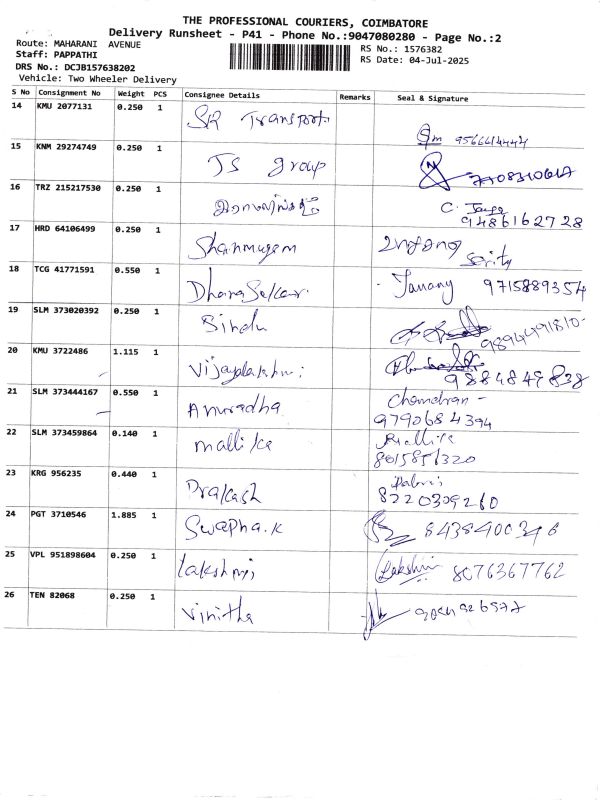 THE PROFESSIONAL COURIERS, COIMBATORE
Delivery Runsheet - P41 - Phone No.:9047080280 - Page No.:2
Route: MAHARANI AVENUE
RS No.: 1576382
Staff: PAPPATHI
RS Date: 04-Jul-2025
DRS No.: DCJB157638202
Vehicle: Two Wheeler Delivery
S No Consignment No Weight PCS Consignee Details Remarks Seal & Signature
14 KMU 2077131 0.250 1 SR Transport
15 KNM 29274749 0.250 1 JS group 7708310617
16 TRZ 215217530 0.250 1 C. 9486162728
17 HRD 64106499 0.250 1 Shanmugam
18 TCG 41771591 0.550 1 DhanaSekar Janany 9715889354
19 SLM 373020392 0.250 1 Bindu 9894491810
20 KMU 3722486 1.115 1 Vijayalakshmi 9884849838
21 SLM 373444167 0.550 1 Anuradha Chandran - 9790684394
22 SLM 373459864 0.140 1 mallika Mallika 8015851320
23 KRG 956235 0.440 1 Prakash 8220309260
24 PGT 3710546 1.885 1 Swapna.K 8438400346
25 VPL 951898604 0.250 1 lakshmi Lakshmi 8076367762
26 TEN 82068 0.250 1 Vinitha